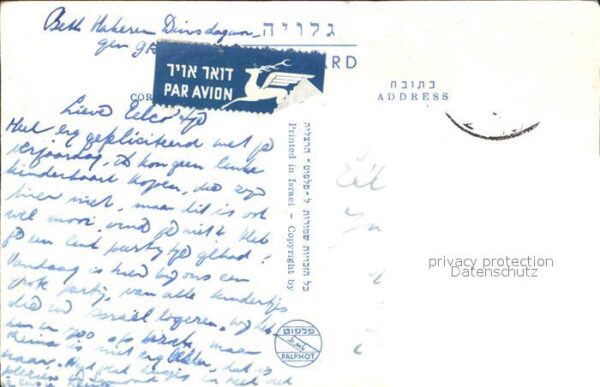 Beth Hakerem Dinsdagmor-
gen
גלויה
ARD
דואר אויר
PAR AVION
COR
כתובת
ADDRESS
Lieve Eelco'tje
Heel erg gefeliciteerd met je
verjaardag, ik kon geen leuke
kinderkaart kopen, die zijn
hier niet, maar dit is ook
wel mooi, vind je niet? Heb
je een leuk partijtje gehad?
Vandaag is hier bij ons een
grote partij, van alle kindertjes
die in Israël logeren,
maar
is niet erg lekker, het is
כל הזכויות שמורות ל-"פלפוט" הרצליה
Printed in Israel - Copyright by
פלפוט
PALPHOT
privacy protection
Datenschutz